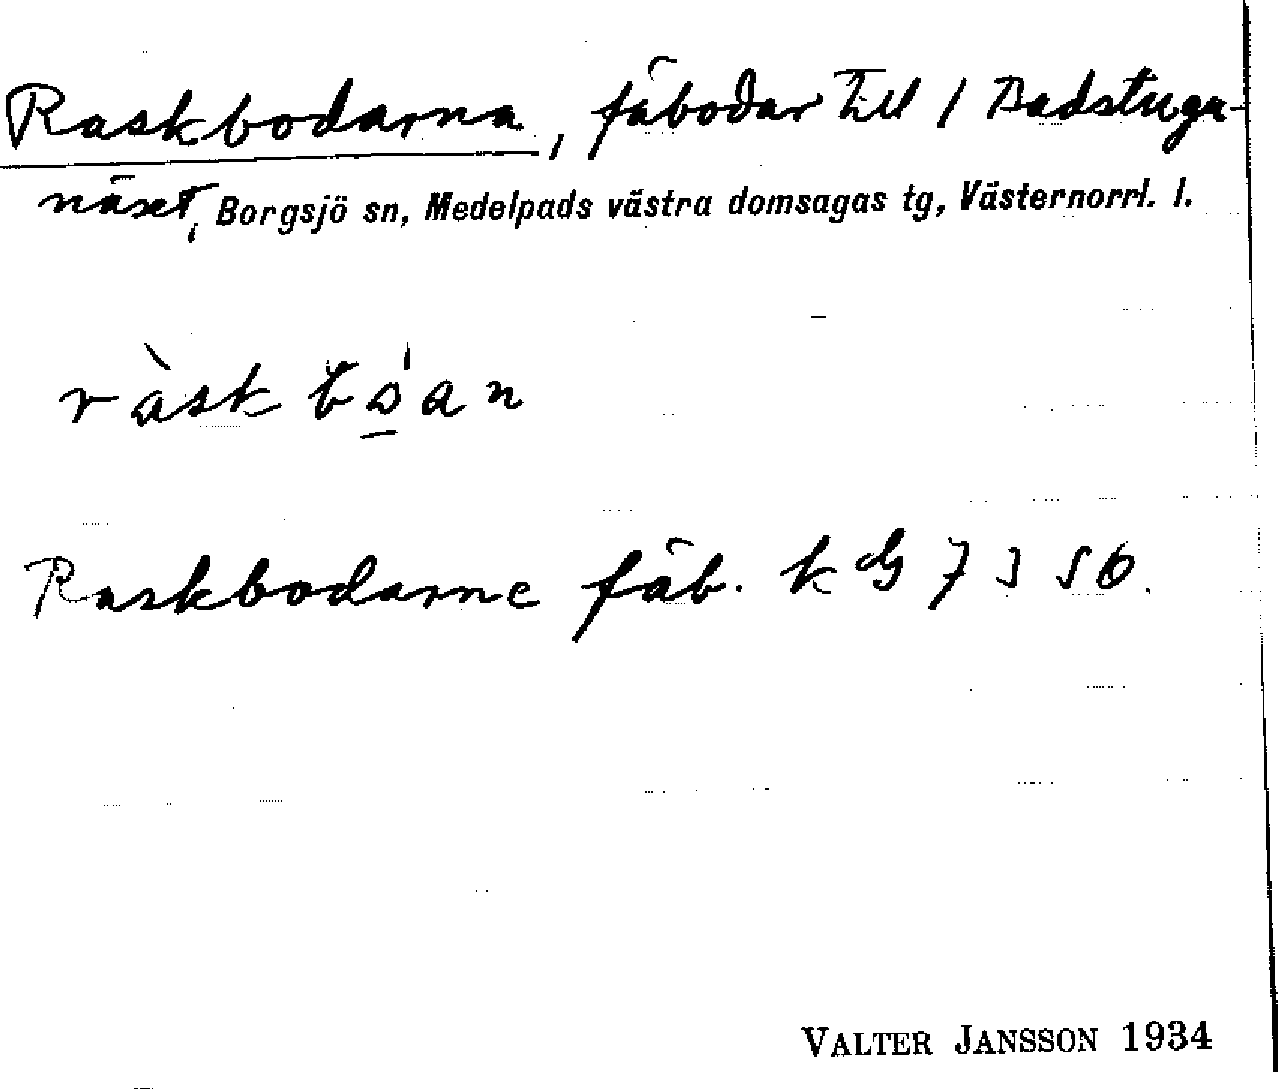 Raskbodarna, fäbodar till 1 Badstugu-
näset, Borgsjö sn, Medelpads västra domsagas tg, Västernorrl. l.
ràsk bo̠'an
Raskbodarne fäb. k G 7 3 56.
VALTER JANSSON 1934